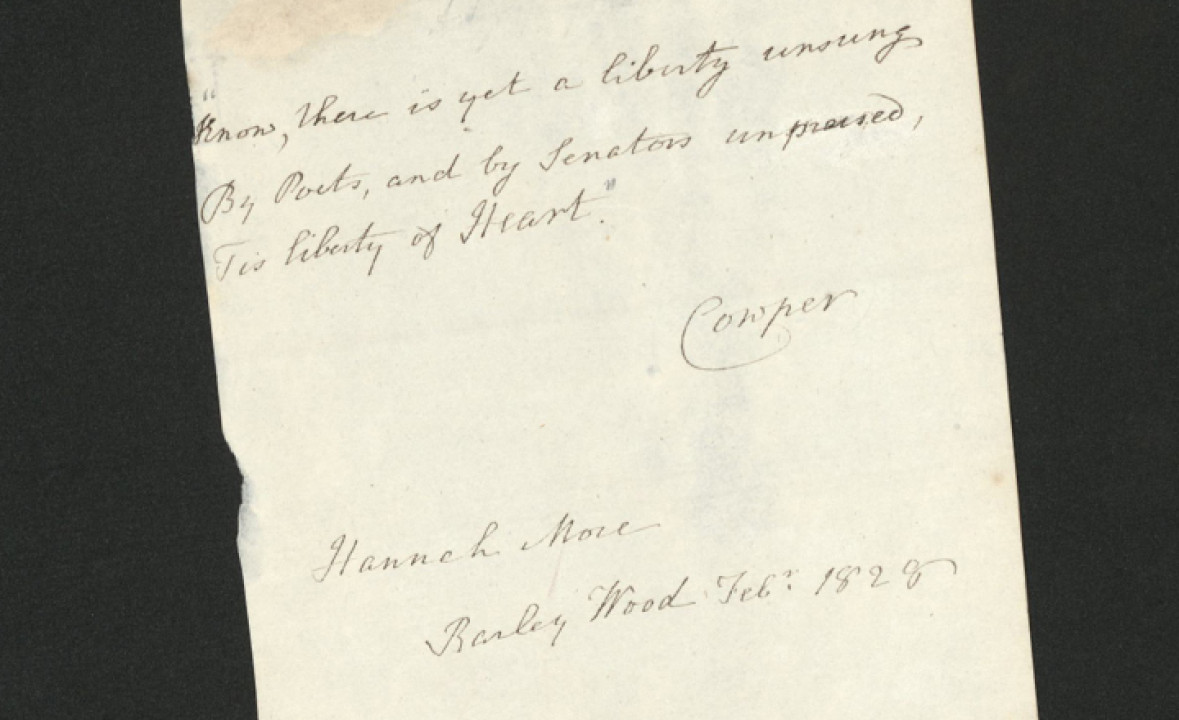 "Know, there is yet a liberty unsung
By Poets, and by Senators unpraised,
Tis liberty of Heart."
Cowper
Hannah More
Barley Wood Febr. 1828